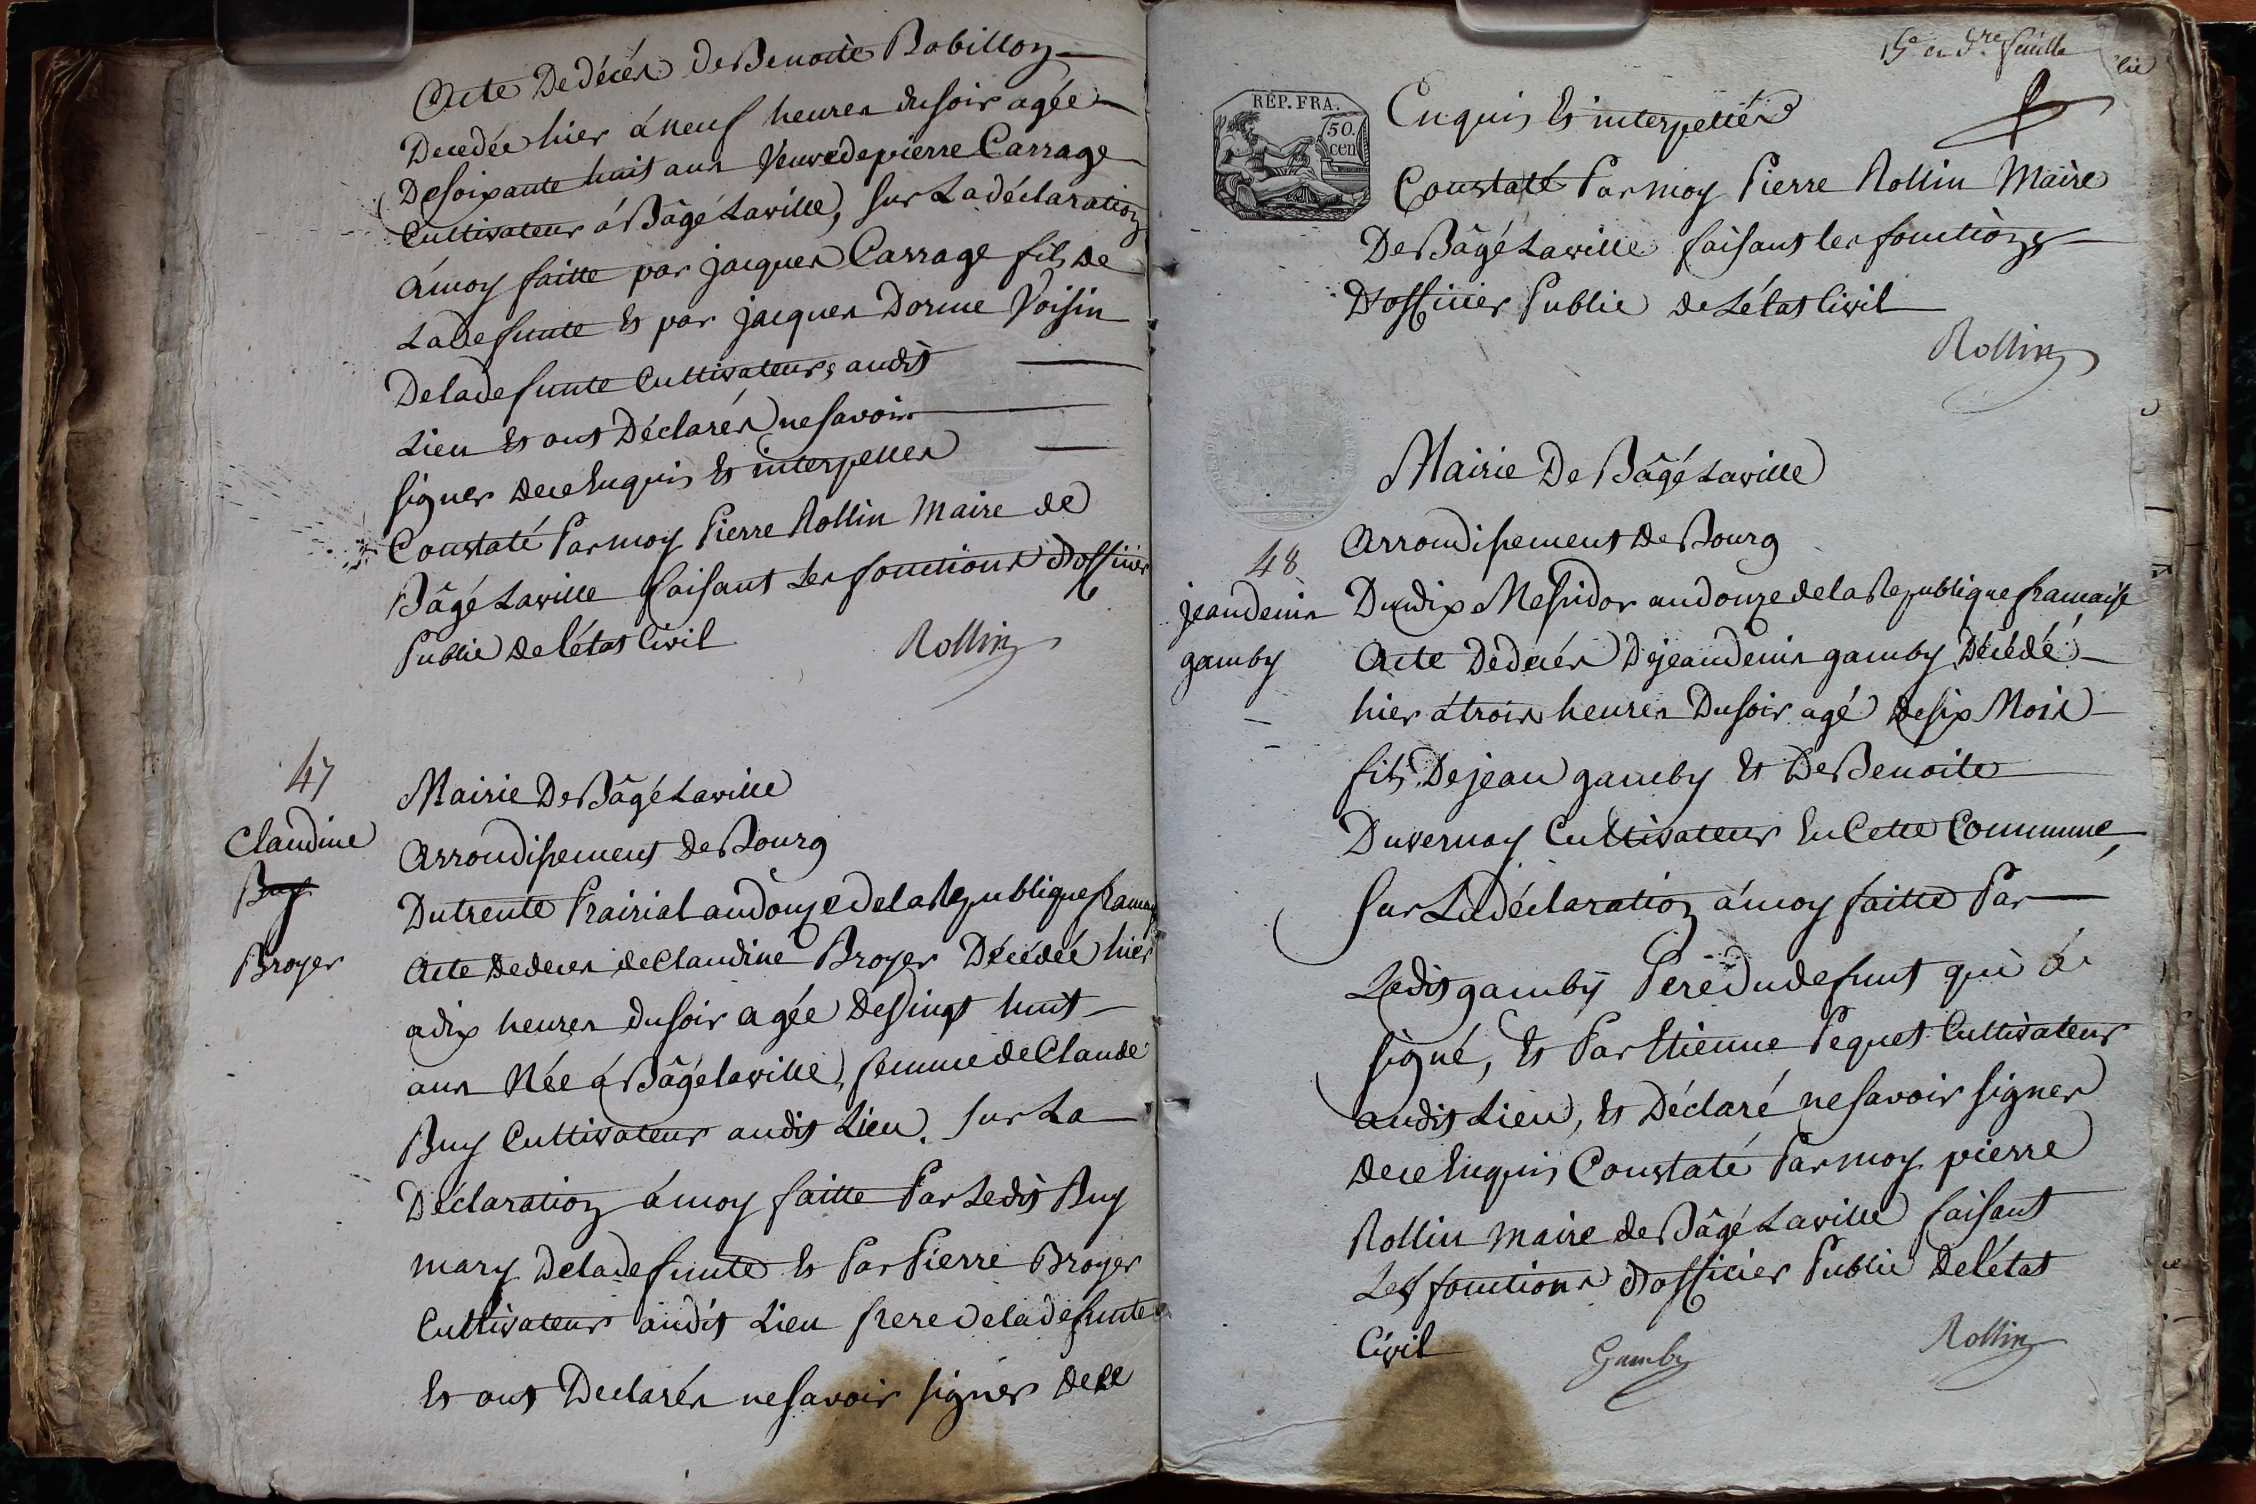 Acte De décés de Benoite Bobillon
Decedée hier á neuf heures du soir agée
De soixante huit ans Veuve de pierre Carrage
Cultivateur á Bâgé Laville, sur La déclaration
á moy faitte par jacques Carrage fils de
La defunte Et par jacques Dorme Voisin
De la defunte Cultivateurs audit
Lieu Et ont Déclarés ne savoir
signer de ce Enquis Et interpelles
Constaté Par moy Pierre Rollin Maire de
Bâgé Laville faisant Les fonctions d'officier
Public de L'état Civil
Rollin
47
Claudine
Buy
Broyer
Mairie De Bâgé Laville
Arrondissement de Bourg
Du trente Prairial an douze de la Republique frança 
Acte de deces de Claudine Broyer Décédée hier
a dix heures du soir agée De Vingt huit
ans Née á Bâgé laville, femme de Claude
Buy Cultivateur audit Lieu. sur La
Déclaration á moy faitte Par Ledit Buy
mary De la defunte Et Par Pierre Broyer
Cultivateur audit Lieu frere de la defunte
Et ont Declarés ne savoir signer de ce
15e et dre feuille
REP. FRA.
50.
cen
Enquis Et interpellés
Constaté Par moy Pierre Rollin Maire
De Bâgé Laville faisant les fonctions
D'officier Public de L'état Civil
Rollin
Mairie De Bâgé Laville
Arrondissement de Bourg
48
jean denis
gamby
Du dix Messidor an douze de la Republique française
Acte De décés De jean denis gamby, Décédé
hier á trois heures Du soir agé de six Mois
fils De jean gamby Et De Benoite
Duvernay Cultivateur En Cette Commune,
sur La déclaration á moy faitte Par
Ledit gamby Pere du defunt qui á
signé, Et Par Etienne Pequet Cultivateur
audit Lieu, Et Déclaré ne savoir signer
de ce Enquis Constaté Par moy pierre
Rollin Maire de Bâgé Laville faisant
Les fonctions d'officier Public De L'état
Civil
Gamby
Rollin